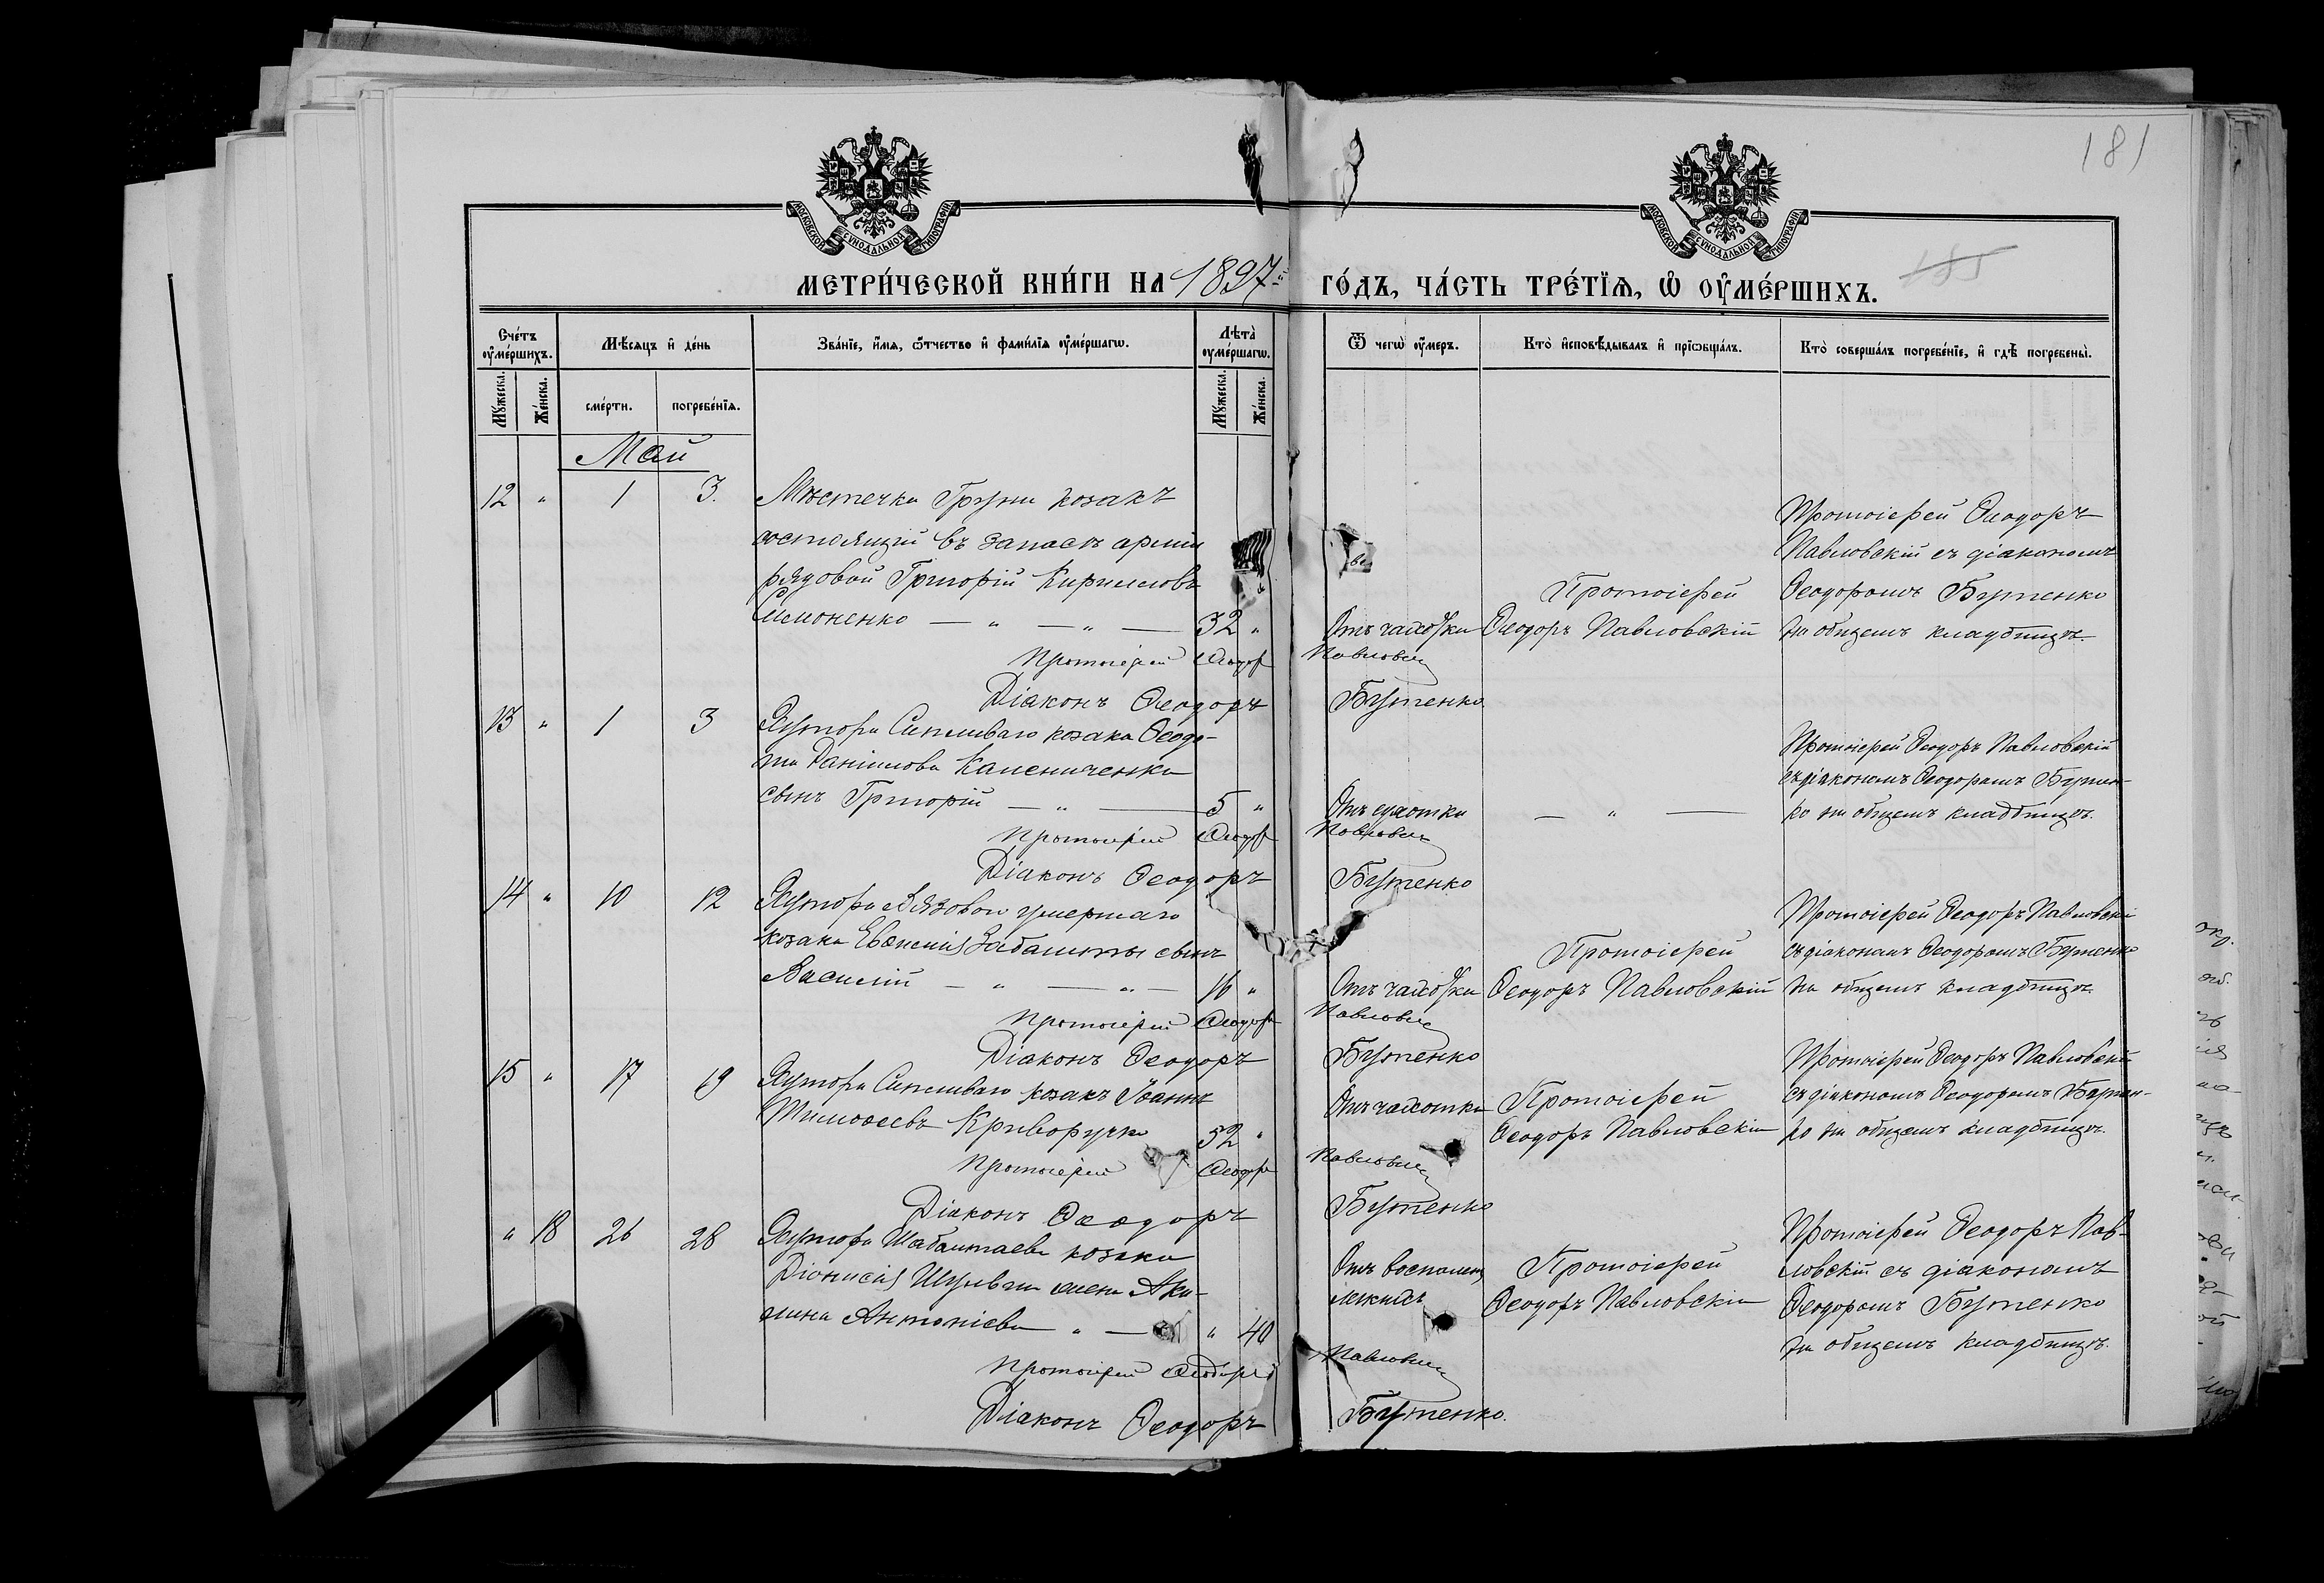 181
МОСКОВСКОЙ СѴНОДАЛЬНОЙ ТИПОГРАФІИ
МОСКОВСКОЙ СѴНОДАЛЬНОЙ ТИПОГРАФІИ
МЕТРИ́ЧЕСКОЙ КНИ́ГИ НА 1897 ГО́ДЪ, ЧА́СТЬ ТРЕ́ТЇѦ, Ѡ҆ ОУ҆МЕ́РШИХЪ.
185
Сче́тъ оу҆ме́ршихъ.
Мꙋ́жеска.
Же́нска.
Мѣ́сѧцъ и҆ де́нь
сме́рти.
погребе́нїѧ.
Зва́нїе, и҆́мѧ, ѻ҆́тчество и҆ фами́лїѧ оу҆ме́ршагѡ.
Лѣ́та оу҆ме́ршагѡ.
Мꙋ́жеска.
Же́нска.
Ѿ чегѡ̀ оу҆́меръ.
Кто̀ и҆сповѣ́дывалъ и҆ прїѡбща́лъ.
Кто̀ соверша́лъ погребе́нїе, и҆ гдѣ̀ погребены̀.
Май
12 " 1 3.
Мѣстечка Груни козакъ
состоящій въ запасѣ арміи
рядовой Григорій Кирилловъ
Симоненко — " — " — 32 "
Отъ чахотки
Протоіерей
Ѳеодоръ Павловскій
Протоіерей Ѳеодоръ
Павловскій съ діакономъ
Ѳеодоромъ Бутенко
на общемъ кладбищѣ.
Протоіерей Ѳеодоръ Павловскій
Діаконъ Ѳеодоръ Бутенко
13 " 1 3
Хутора Сипливаго козака Ѳеодо-
та Даніилова
сынъ Григорій — " — 5 "
Отъ сухотки
— " —
Протоіерей Ѳеодоръ Павловскій
съ діакономъ Ѳеодоромъ Бутен-
ко на общемъ кладбищѣ.
Протоіерей Ѳеодоръ Павловскій
Діаконъ Ѳеодоръ Бутенко
14 " 10 12
Хутора Вязовой умершаго
козака Евѳимія Забашты сынъ
Василій — " — " — 16 "
Отъ чахотки
Протоіерей
Ѳеодоръ Павловскій
Протоіерей Ѳеодоръ Павловскій
съ діакономъ Ѳеодоромъ Бутенко
на общемъ кладбищѣ.
Протоіерей Ѳеодоръ Павловскій
Діаконъ Ѳеодоръ Бутенко
15 " 17 19
Хутора Сипливаго козакъ Іоаннъ
Тимоѳеевъ Криворучко 52 "
Отъ чахотки
Протоіерей
Ѳеодоръ Павловскій
Протоіерей Ѳеодоръ Павловскій
съ діакономъ Ѳеодоромъ Бутен-
ко на общемъ кладбищѣ.
Протоіерей Ѳеодоръ Павловскій
Діаконъ Ѳеодоръ Бутенко
" 18 26 28
Хутора козака
Діонисія жена Аки-
лина Антоніева " — " 40
Отъ воспален
легкихъ
Протоіерей
Ѳеодоръ Павловскій
Протоіерей Ѳеодоръ Пав-
ловскій съ діакономъ
Ѳеодоромъ Бутенко
на общемъ кладбищѣ.
Протоіерей Ѳеодоръ Павловскій
Діаконъ Ѳеодоръ Бутенко.